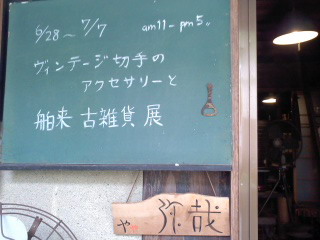 6/28〜7/7 am11-pm5。
ヴィンテージ切手の
アクセサリーと
舶来 古雑貨 展
弥哉
や